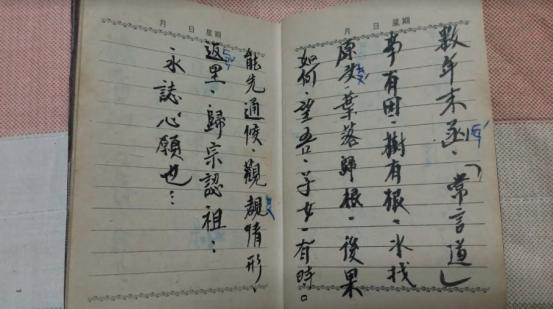 月 日 星期
數年末函、「常言道」
事有因、樹有根、水找
原头、葉落歸根、後果
如何、望吾、子女、有時。
月 日 星期
能先通候、觀情形、
返里、歸宗認祖：
永誌心願也…